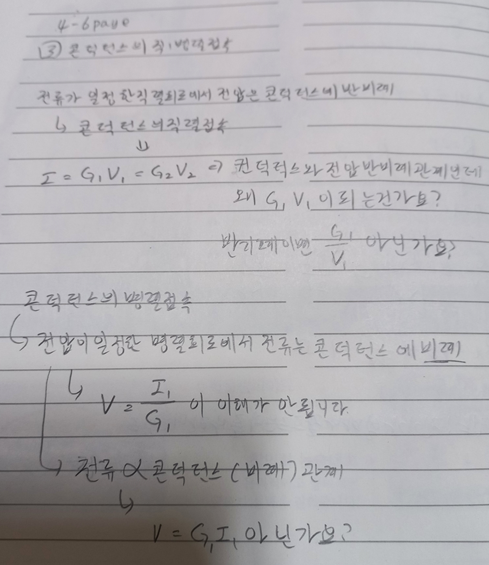 4-6page
③ 콘덕턴스의 직·병렬접속
전류가 일정한 직렬회로에서 전압은 콘덕턴스에 반비례
↳ 콘덕턴스의 직렬접속
⇓
I = G₁V₁ = G₂V₂ ⇒ 컨덕턴스와 전압 반비례관계인데
왜 G₁V₁ 이 되는건가요?
반비례이면 G₁/V₁ 아닌가요?
콘덕턴스의 병렬접속
↳ 전압이 일정한 병렬회로에서 전류는 콘덕턴스에 비례
↳ V = I₁/G₁ 이 이해가 안됩니다
↳ 전류 ∝ 콘덕턴스 (비례) 관계
↳
V = G₁I₁ 아닌가요?